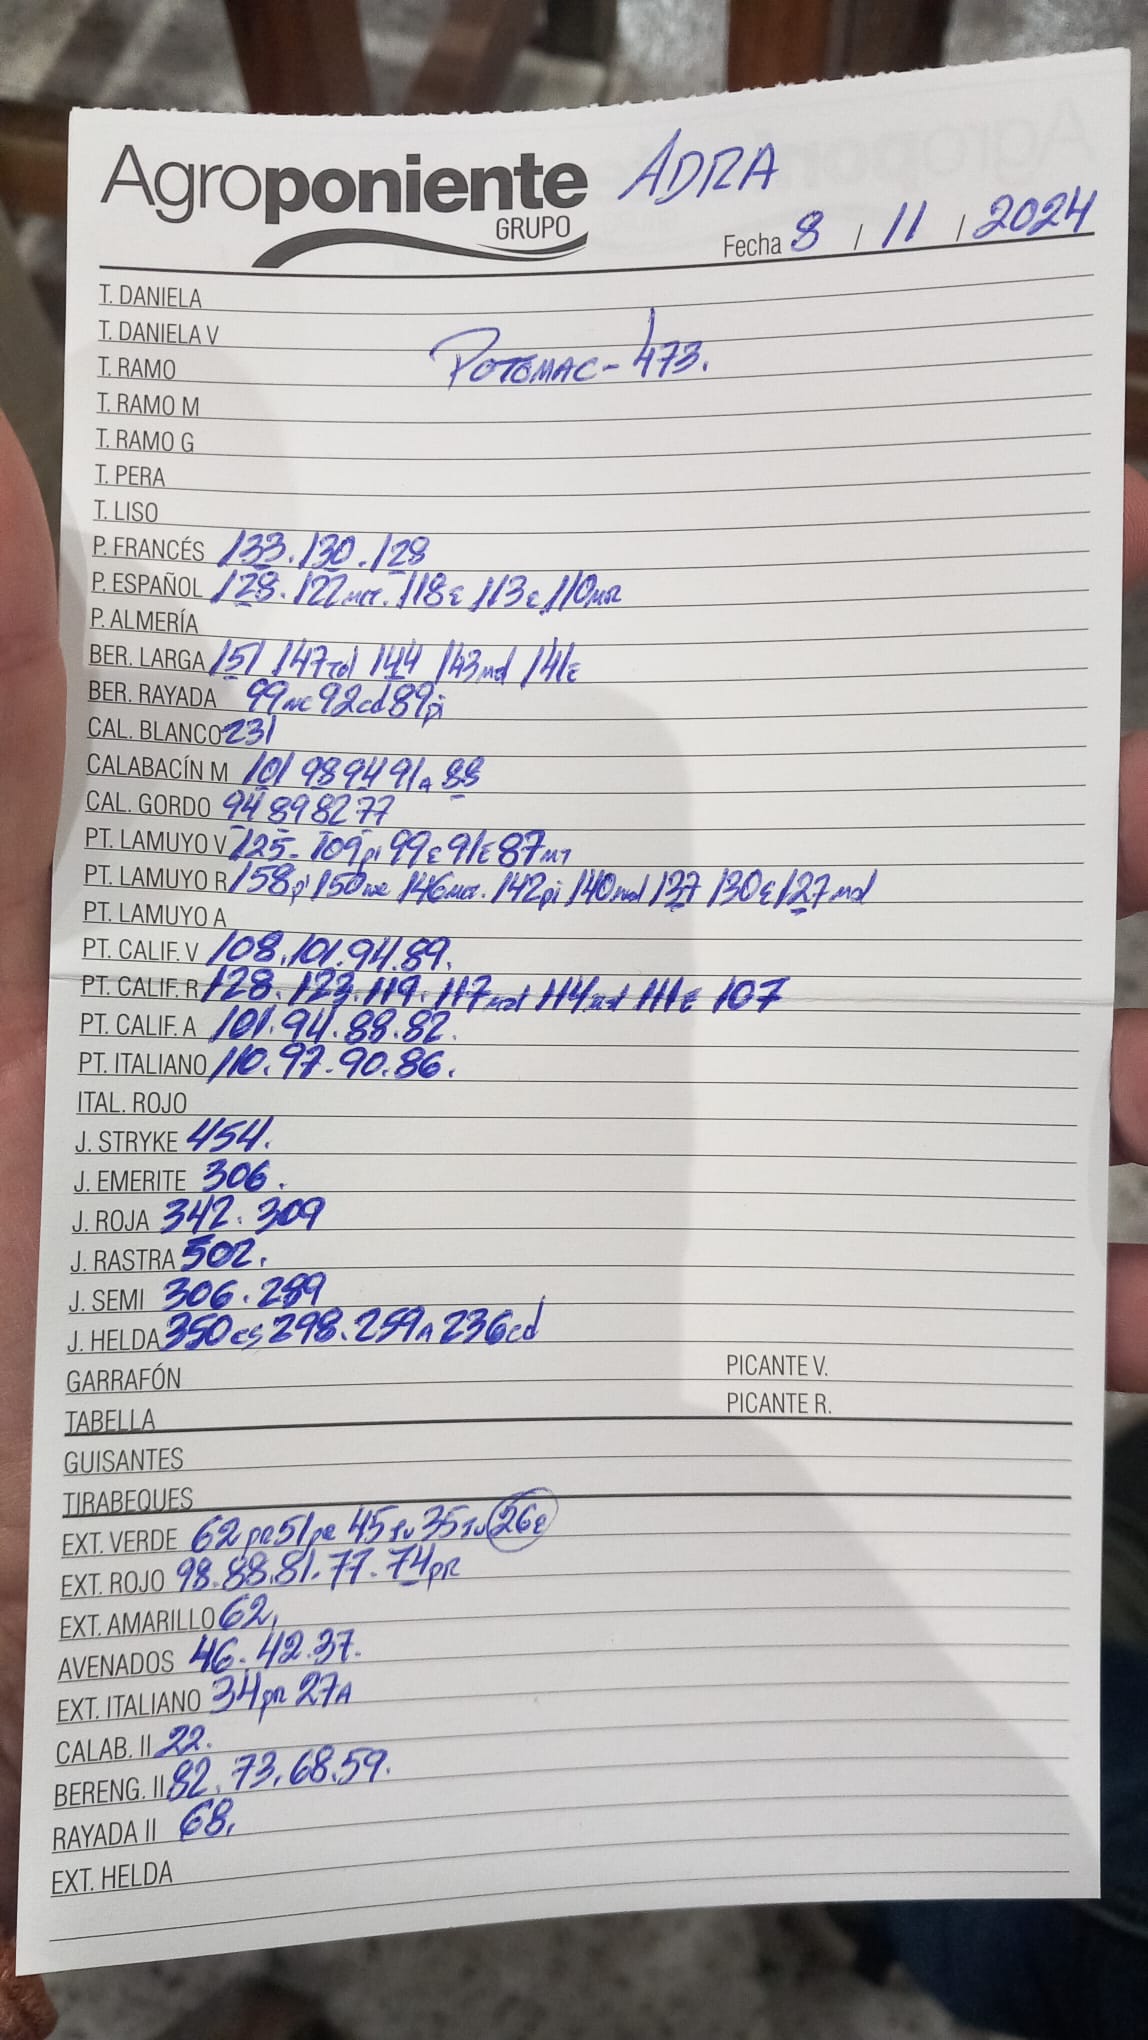 Agroponiente ADRA
GRUPO
Fecha 8 / 11 / 2024
T. DANIELA
T. DANIELA V
POTOMAC - 473.
T. RAMO
T. RAMO M
T. RAMO G
T. PERA
T. LISO
P. FRANCÉS 133. 130. 128
P. ESPAÑOL 128. 122 118E 113E 110
P. ALMERÍA
BER. LARGA 151 147 144 143md 141E
BER. RAYADA 99 92cd 89pi
CAL. BLANCO 231
CALABACÍN M 101 98 94 91A 88
CAL. GORDO 94 89 82 77
PT. LAMUYO V 125- 109pi 99E 91E 87
PT. LAMUYO R 158pi 150 146 142pi 140md 137 130E 127md
PT. LAMUYO A
PT. CALIF. V 108. 101. 94. 89.
PT. CALIF. R 128. 123. 119. 117md 114md 111E 107
PT. CALIF. A 101. 94. 88. 82.
PT. ITALIANO 110. 97. 90. 86.
ITAL. ROJO
J. STRYKE 454.
J. EMERITE 306.
J. ROJA 342. 309
J. RASTRA 502.
J. SEMI 306. 289
J. HELDA 350cs 298. 259A 236cd
GARRAFÓN PICANTE V.
TABELLA PICANTE R.
GUISANTES
TIRABEQUES
EXT. VERDE 62pr 51pr 45 35 26E
EXT. ROJO 98. 88. 81. 77. 74pr
EXT. AMARILLO 62,
AVENADOS 46. 42. 37.
EXT. ITALIANO 34pr 27A
CALAB. II 22.
BERENG. II 82. 73. 68. 59.
RAYADA II 68,
EXT. HELDA